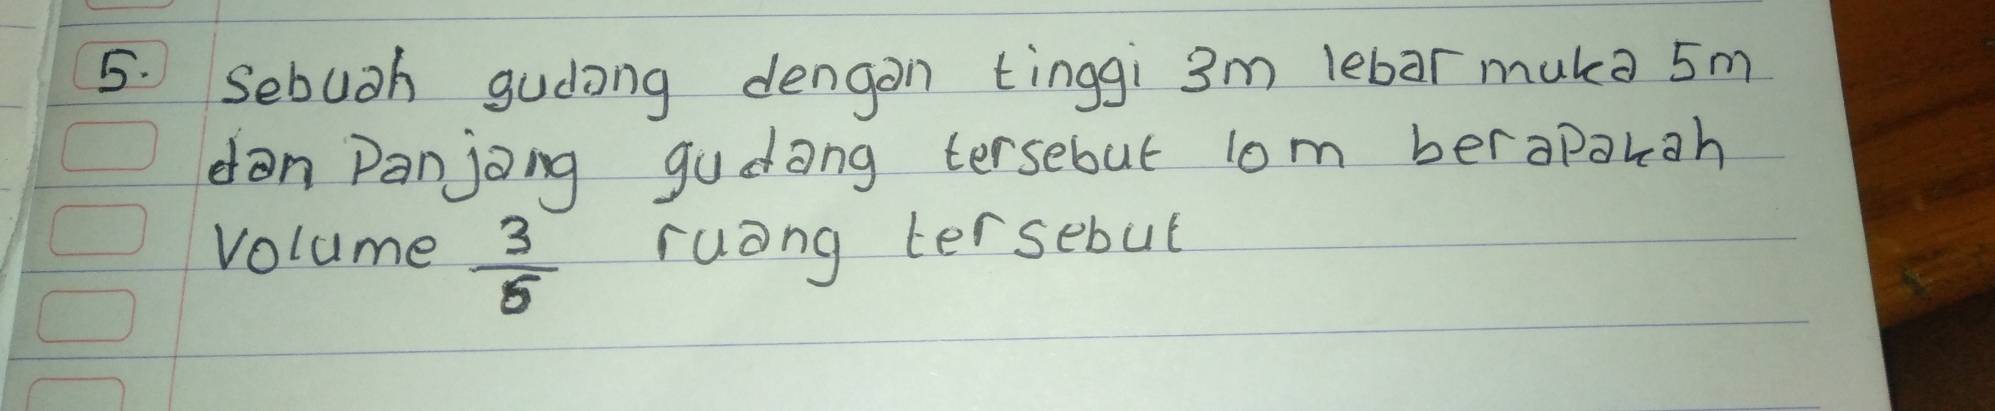 5. Sebuah gudang dengan tinggi 3m lebar muka 5m
dan Panjang gudang tersebut 10 m berapakah
Volume 3/5 ruang tersebut